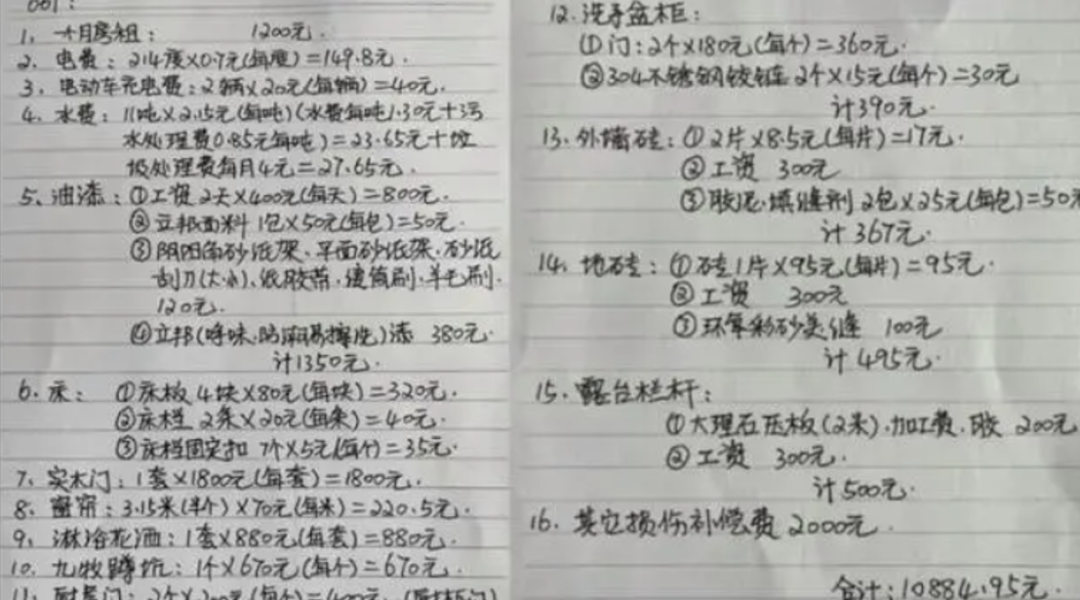 001:
1、十月房租: 1200元.
2、电费: 214度×0.7元(每度)=149.8元.
3、电动车充电费: 2辆×20元(每辆)=40元.
4、水费: 11吨×2.15元(每吨)(水费每吨1.30元+污
水处理费0.85元每吨)=23.65元+垃
圾处理费每月4元=27.65元.
5、油漆: ①工资 2天×400元(每天)=800元.
②立邦面料 1包×50元(每包)=50元.
③阴阳角砂纸架、平面砂纸架、砂纸
刮刀(大小)、纸胶带、滚筒刷、羊毛刷.
120元.
④立邦( 味.防潮易擦洗)漆 380元.
计1350元.
6、床: ①床板 4块×80元(每块)=320元.
②床档 2条×20元(每条)=40元.
③床档固定扣 7个×5元(每个)=35元.
7、实木门: 1套×1800元(每套)=1800元.
8、窗帘: 3.15米(半个)×70元(每米)=220.5元.
9、淋浴花洒: 1套×880元(每套)=880元.
10、九牧蹲坑: 1个×670元(每个)=670元.
11、 门: 2个×200元(每个)=400元.
12、洗手盆柜:
①门: 2个×180元(每个)=360元.
②304不锈钢铰链 2个×15元(每个)=30元
计390元.
13、外墙砖: ①2片×8.5元(每片)=17元.
②工资 300元
③胶泥.填缝剂 2包×25元(每包)=50元
计367元.
14、地砖: ①砖1片×95元(每片)=95元.
②工资 300元
③环氧彩砂美缝 100元
计495元.
15、露台栏杆:
①大理石压板(2米).加工费.胶 200元
②工资 300元.
计500元.
16、其它损伤补偿费 2000元.
合计: 10884.95元.